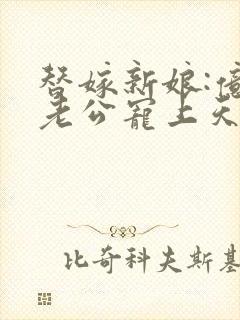 替嫁新娘:億
老公寵上天
比奇科夫斯基